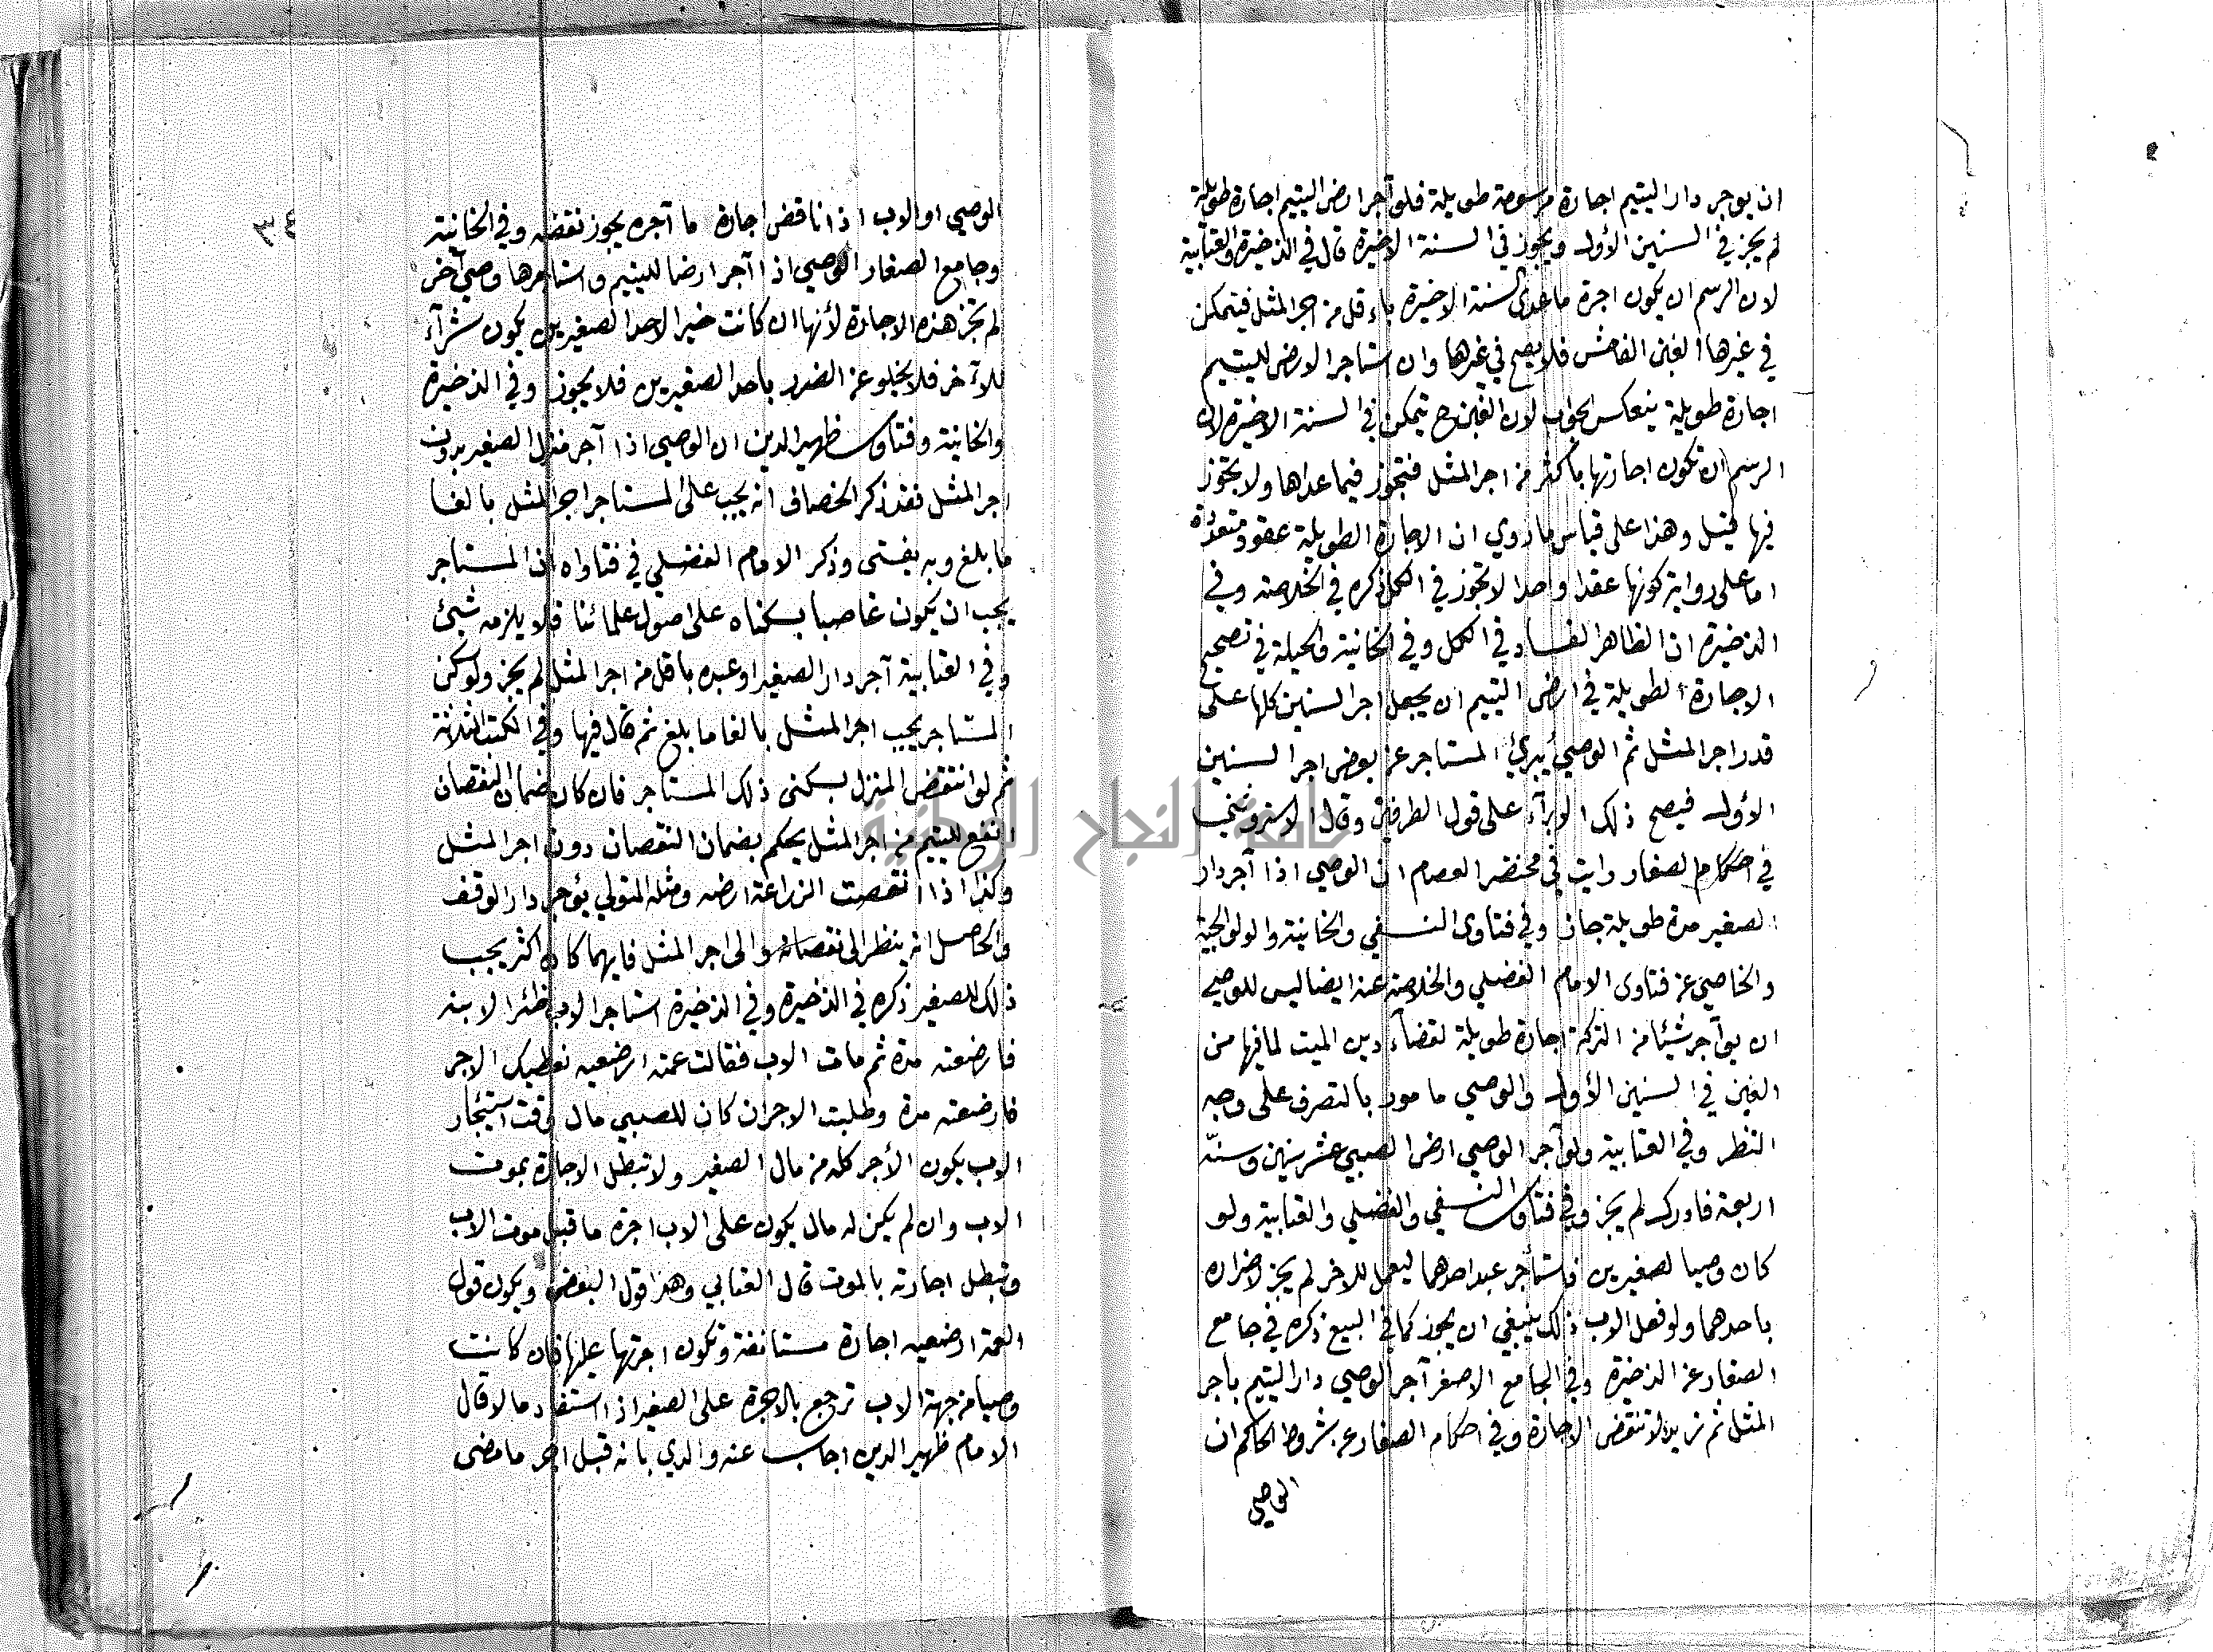 ان يوجر دار اليتيم اجارة مرسومة طويلة فلو آجر ارض اليتيم اجارة طويلة
لم يجز في السنين الأول ويجوز في السنة الاخيرة قال في الذخيرة والعتابية
لان الرسم ان يكون اجرة ما عدى السنة الاخيرة باقل من اجر المثل فيتمكن
في غيرها الغبن الفاحش فلا يصح في غيرها وان استاجر الارض لليتيم
اجارة طويلة ينعكس الجواب لان الغبن ح يتمكن في السنة الاخيرة لان
الرسم ان تكون اجارتها باكثر من اجر المثل فتجوز فيما عداها ولا يجوز
فيها قيل وهذا على قياس ما روي ان الاجارة الطويلة عقود متعددة
اما على رواية كونها عقدا واحدا لا تجوز في الكل ذكره في الخلاصة وفي
الذخيرة ان الظاهر الفساد في الكل وفي الخانية والحيلة في تصحيح
الاجارة الطويلة في ارض اليتيم ان يجعل اجر السنين كلها على
قدر اجر المثل ثم الوصي يبرئ المستاجر عن بعض اجر السنين
الأول فيصح ذلك الابرآء على قول الطرفين وقال الاستروشني
في احكام الصغار رايت في مختصر العصام ان الوصي اذا آجر دار
الصغير مدة طويلة جاز وفي فتاوى النسفي والخانية والولوالجية
والخاصي عن فتاوى الامام الفضلي والخلاصة عنه ايضا ليس للوصي
ان يوآجر شيئا من التركة اجارة طويلة لقضآء دين الميت لما فيها من
الغبن في السنين الأول والوصي مامور بالتصرف على وجه
النظر وفي العتابية ولو آجر الوصي ارض الصبي عشر سنين وسنّه
اربعة فادرك لم يجز وفي فتاوى النسفي والفضلي والعتابية ولو
كان وصيا لصغيرين فاستأجر عبد احدهما ليعمل للاخر لم يجز لاضراره
باحدهما ولو فعل الاب ذلك ينبغي ان يجوز كما في البيع ذكره في جامع
الصغار عن الذخيرة وفي الجامع الاصغر آجر الوصي دار اليتيم باجر
المثل ثم زيد لا تنتقض الاجارة وفي احكام الصغار عن شروط الحاكم ان
الوصي
٣٤
الوصي او الاب اذا ناقض اجارة ما آجره يجوز نقضه وفي الخانية
وجامع الصغار الوصي اذا آجر ارضا لليتيم واستاجرها وصي آخر
لم تجز هذه الاجارة لأنها ان كانت خيرا لاحد الصغيرين يكون شرآء
للآخر فلا يخلو عن الضرر باحد الصغيرين فلا يجوز وفي الذخيرة
والخانية وفتاوى ظهير الدين ان الوصي اذا آجر منزل الصغير بدون
اجر المثل فقد ذكر الخصاف انه يجب على المستاجر اجر المثل بالغا
ما بلغ وبه يفتى وذكر الامام الفضلي في فتاواه ان المستاجر
يجب ان يكون غاصبا بسكناه على اصول علمائنا فلا يلزمه شئ
وفي العتابية آجر دار الصغير او عبده باقل من اجر المثل لم يجز ولو سكن
المستاجر يجب اجر المثل بالغا ما بلغ ثم قال فيها وفي الكتب الثلاثة
ثم لو انتقض المنزل بسكنى ذلك المستاجر فان كان ضمان النقصان
انفع لليتيم من اجر المثل يحكم بضمان النقصان دون اجر المثل
وكذا اذا انتقصت الزراعة ارضه ومثله المتولي يؤجر دار الوقف
والحاصل انه ينظر الى نقصانه والى اجر المثل فايهما كان اكثر يجب
ذلك للصغير ذكره في الذخيرة وفي الذخيرة استاجر الاب ظئرا لابنه
فارضعته مدة ثم مات الاب فقالت عمته ارضعيه نعطيك الاجر
فارضعته مدة وطلبت الاجر ان كان للصبي مال وقت استئجار
الاب يكون الأجر كله من مال الصغير ولا تبطل الاجارة بموت
الاب وان لم يكن له مال يكون على الاب اجرة ما قبل موت الاب
وتبطل اجارته بالموت قال العتابي وهذا قول البعض ويكون قول
العمة ارضعيه اجارة مستانفة وتكون اجرتها عليها فان كانت
وصيا من جهة الاب ترجع بالاجرة على الصغير اذا استفاد مالا قال
الامام ظهير الدين اجاب عنه والدي بانه قبل اجر ما مضى
جامعة النجاح الوطنية